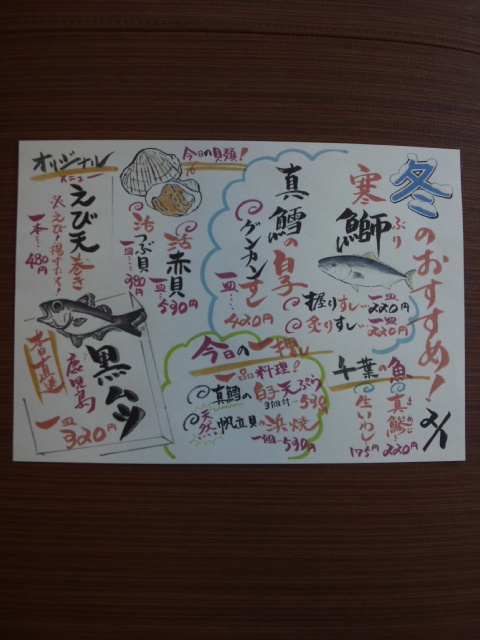 冬のおすすめ!
2/1
寒鰤
ぶり
握りすし…一皿220円
炙りすし…一皿220円
真鱈の白子
グンカンすし
一皿…420円
千葉の魚
真鯵…220円
まあじ
生いわし
175円
今日の貝類!
活赤貝
一皿…530円
活つぶ貝
一皿…380円
今日の一押し
一品料理!
真鱈の白子天ぷら
530円
天然帆立貝の浜焼
一個…530円
オリジナル
メニュー
えび天巻き
一本…480円
黒ムツ
鹿児島
産直送
一皿320円